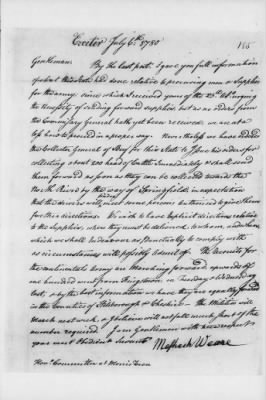 Exeter July 6th 1780
186
Gentlemen
By the last post I gave you full information
of what this State had done relative to procuring men & Supplies
for the army, since which I received yours of the 23d Ulto urging
the Necessity of sending forward supplies, but as no orders from
the Commissary General hath yet been received we are at a
loss how to proceed in a proper way. Nevertheless we have
the Collector General of Beef for this State to Issue his orders for
collecting about 200 head of Cattle Immediately & shall send
them forward as soon as they can be collected toward the
North River by the way of Springfield in expectation
that the drovers will meet some persons to give them
further directions. We wish to have explicit directions relative
to the Supplies, where they must be delivered, to whom, and when
which we shall Endeavour as Punctually to comply with
as circumstances will possibly admit of. The Recruits for
the continental Army are Marching forward, upwards of
one hundred went from Kingstown on Tuesday & Wednesday
last, & by the best information we have they are equally
in the Counties of Hillsborough & Cheshire. The Militia will
March next week, & I believe will not fall much short of the
number required I am Gentlemen with much respect
your most Obedient Servant
Meshech Weare
Honl Committee at Morris Town